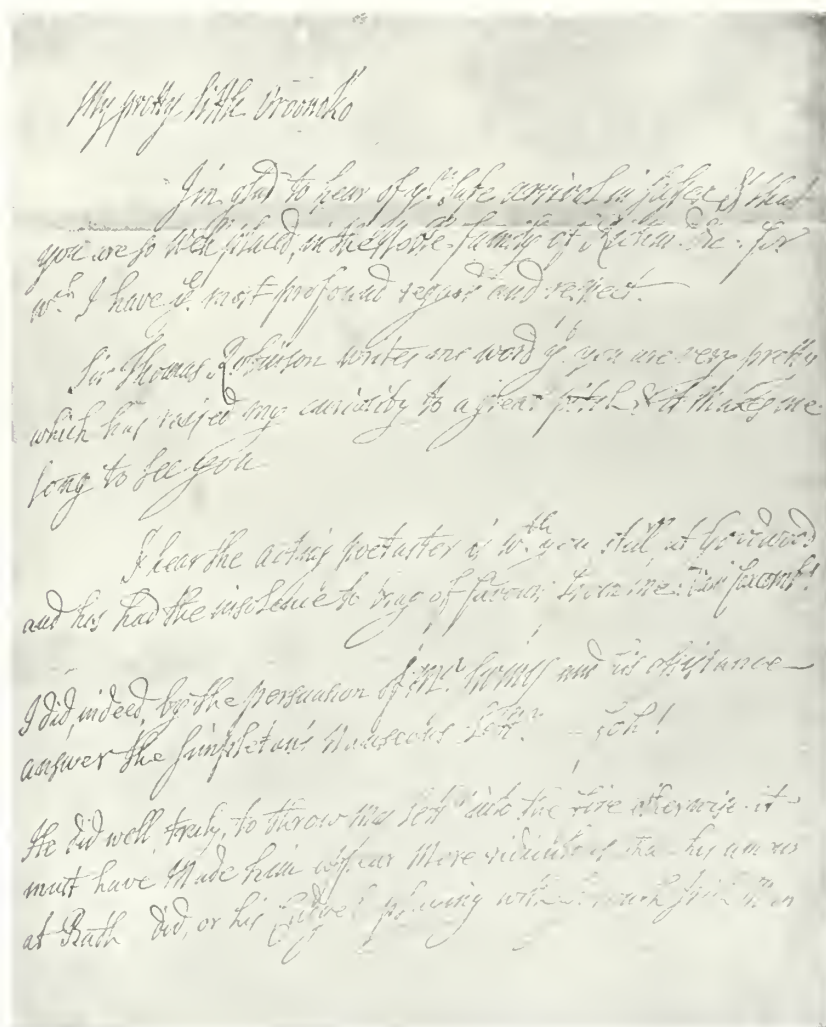 My pretty little Oroonoko
I'm glad to hear of yr. safe arrival in Sussex & that
you are so well placed, in the Noble family of Richm. &c. for
wch. I have ye. most profound regard and respect.
Sir Thomas Robinson writes me word yt. you are very pretty
which has raised my curiosity to a great pitch & it makes me
long to see you
I hear the acting poetaster is wth you still at Goodwood
and has had the insolence to brag of favours from me:
I did, indeed, by the persuation of Mr. and his assistance
answer the simpleton's Nauseous Lettr. foh!
He did well truly, to throw my letr into the fire otherwise it
must have made him appear More ridiculous than his
at Bath did, or his playing with